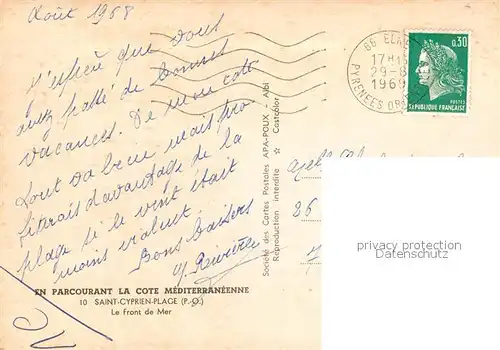 Août 1968
J'espère que vous
avez passé de bonnes
vacances. De mon coté
tout va bien mais pro
fiterais davantage de la
plage si le vent était
moins violent
Bons baisers
Y. Rivière
EN PARCOURANT LA COTE MÉDITERRANÉENNE
10 SAINT-CYPRIEN-PLAGE (P.-O.)
Le Front de Mer
Société des Cartes Postales APA-POUX - Albi
Reproduction interdite ☆ Castcolor
66 ELNE
17H
29-8
1969
PYRENEES OR
0,30
POSTES
REPUBLIQUE FRANÇAISE
86
privacy protection
Datenschutz